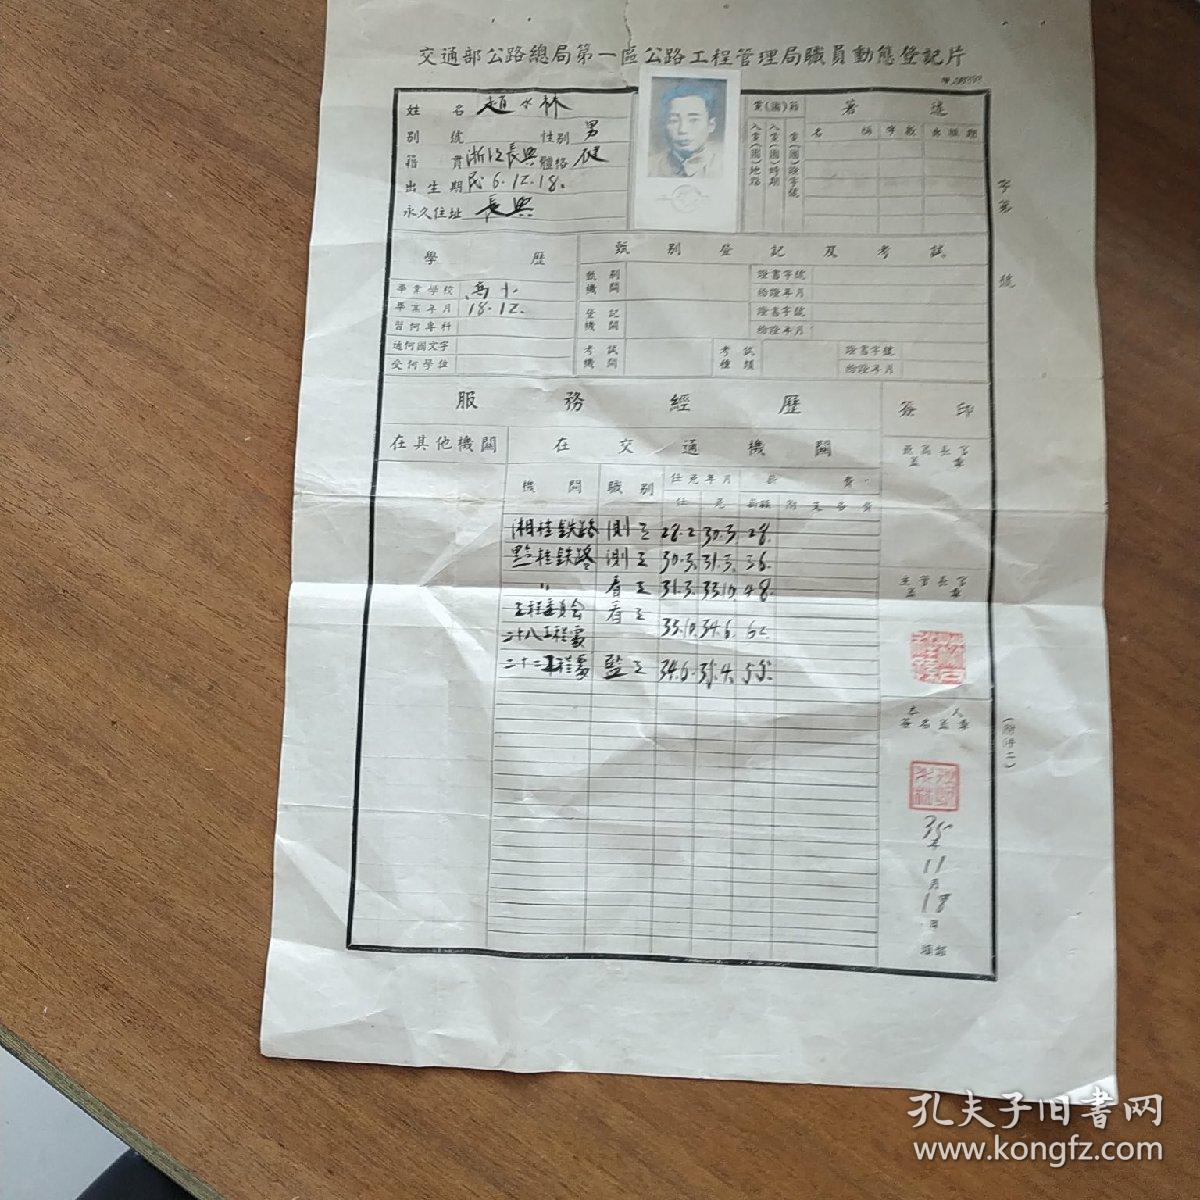 交通部公路總局第一區公路工程管理局職員動態登記片
姓名 趙水林
別號 性別 男
籍貫 浙江長興 體格 健
出生期 民6.12.18.
永久住址 長興
黨(團)籍
入黨(團)地點
入黨(團)時期
黨(團)證字號
著述
名稱 字數 出版期
字第 號
學歷
畢業學校 高小
畢業年月 18.12.
習何專科
通何國文字
受何學位
甄別登記及考試
甄別機關 證書字號
給證年月
登記機關 證書字號
給證年月
考試機關 考試種類 證書字號
給證年月
服務經歷
簽印
在其他機關 在交通機關
機關 職別 任免年月 薪 費
任 免 薪額
湘桂鉄路 測工 28.2 30.3 28.
黔桂鉄路 測工 30.3. 31.3. 36.
〃 看工 31.3. 33.10. 48.
工程委員会 看工
二十八工程處 33.10. 34.6. 52.
二十二工程處 監工 34.6. 35.4. 55.
主管長官
蓋章
本人
簽名蓋章
35年
11月
18日
填報
(附件二)
孔夫子旧书网
www.kongfz.com